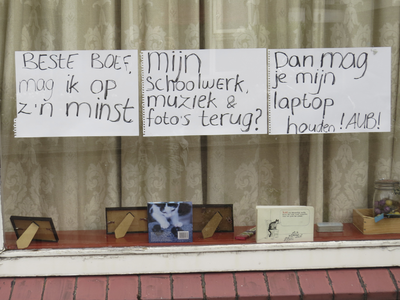 BESTE BOEF,
mag ik op
z'n minst
mijn
schoolwerk,
muziek &
foto's terug?
Dan mag
je mijn
laptop
houden! AUB!